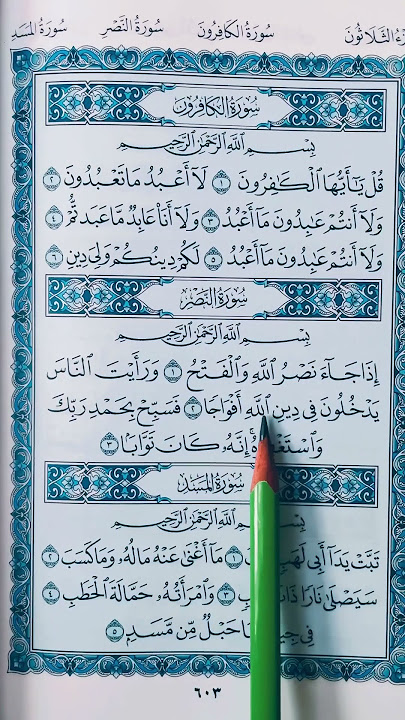 سُورَةُ الكَافِرُونَ سُورَةُ النَّصْرِ سُورَةُ المَسَدِ
سُورَةُ الكَافِرُونَ
بِسْمِ ٱللَّهِ ٱلرَّحْمَٰنِ ٱلرَّحِيمِ
قُلْ يَٰٓأَيُّهَا ٱلْكَٰفِرُونَ ١ لَآ أَعْبُدُ مَا تَعْبُدُونَ ٢
وَلَآ أَنتُمْ عَٰبِدُونَ مَآ أَعْبُدُ ٣ وَلَآ أَنَا۠ عَابِدٌ مَّا عَبَدتُّمْ ٤
وَلَآ أَنتُمْ عَٰبِدُونَ مَآ أَعْبُدُ ٥ لَكُمْ دِينُكُمْ وَلِيَ دِينِ ٦
سُورَةُ النَّصْرِ
بِسْمِ ٱللَّهِ ٱلرَّحْمَٰنِ ٱلرَّحِيمِ
إِذَا جَآءَ نَصْرُ ٱللَّهِ وَٱلْفَتْحُ ١ وَرَأَيْتَ ٱلنَّاسَ
يَدْخُلُونَ فِي دِينِ ٱللَّهِ أَفْوَاجًا ٢ فَسَبِّحْ بِحَمْدِ رَبِّكَ
إِنَّهُۥ كَانَ تَوَّابًۢا ٣
سُورَةُ المَسَدِ
بِسْمِ ٱللَّهِ ٱلرَّحْمَٰنِ ٱلرَّحِيمِ
تَبَّتْ يَدَآ أَبِي ١ مَآ أَغْنَىٰ عَنْهُ مَالُهُۥ وَمَا كَسَبَ ٢
سَيَصْلَىٰ نَارًا ٣ وَٱمْرَأَتُهُۥ حَمَّالَةَ ٱلْحَطَبِ ٤
فِي حَبْلٌ مِّن مَّسَدٍۭ ٥
٦٠٣